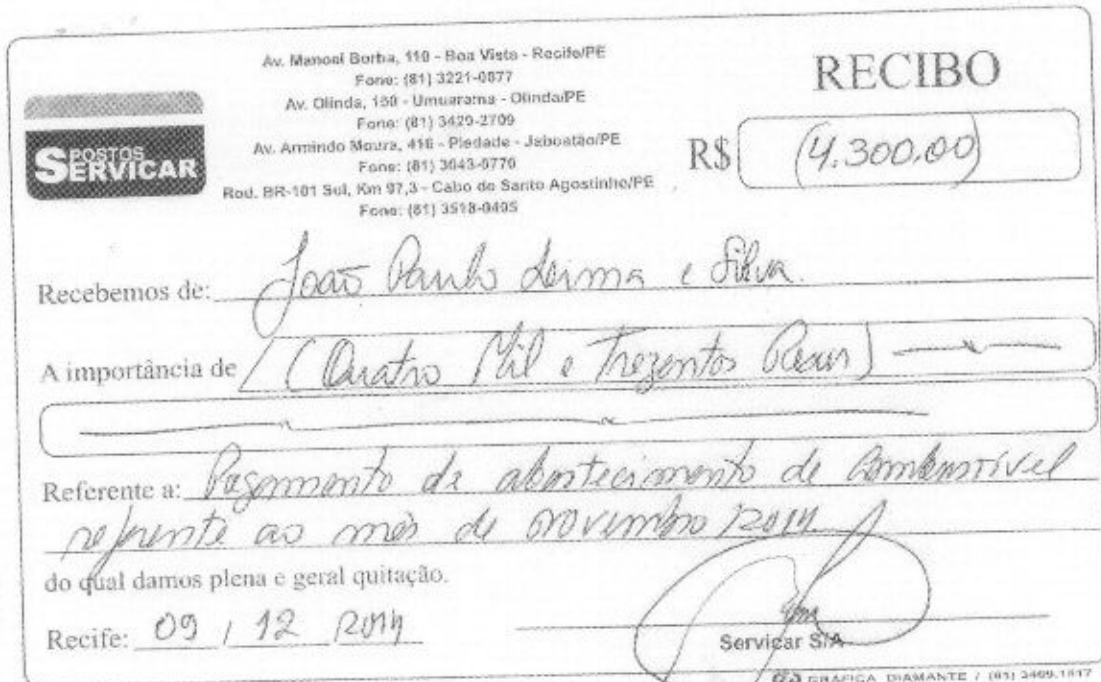 Av. Manoel Borba, 110 - Boa Vista - Recife/PE
Fone: (81) 3221-0877
Av. Olinda, 150 - Umuarama - Olinda/PE
Fone: (81) 3429-2709
Av. Armindo Moura, 416 - Piedade - Jaboatão/PE
Fone: (81) 3043-0770
Rod. BR-101 Sul, Km 97,3 - Cabo de Santo Agostinho/PE
Fone: (81) 3518-0495
POSTOS
SERVICAR
RECIBO
R$ (4.300,00)
Recebemos de: João Paulo Leima e Silva.
A importância de (Quatro Mil e Trezentos Reais)
Referente a: Pagamento de abastecimento de combustível
referente ao mês de novembro/2014
do qual damos plena e geral quitação.
Recife: 09 / 12 /2014
Servicar S/A
GRÁFICA DIAMANTE / (81) 3469.1817